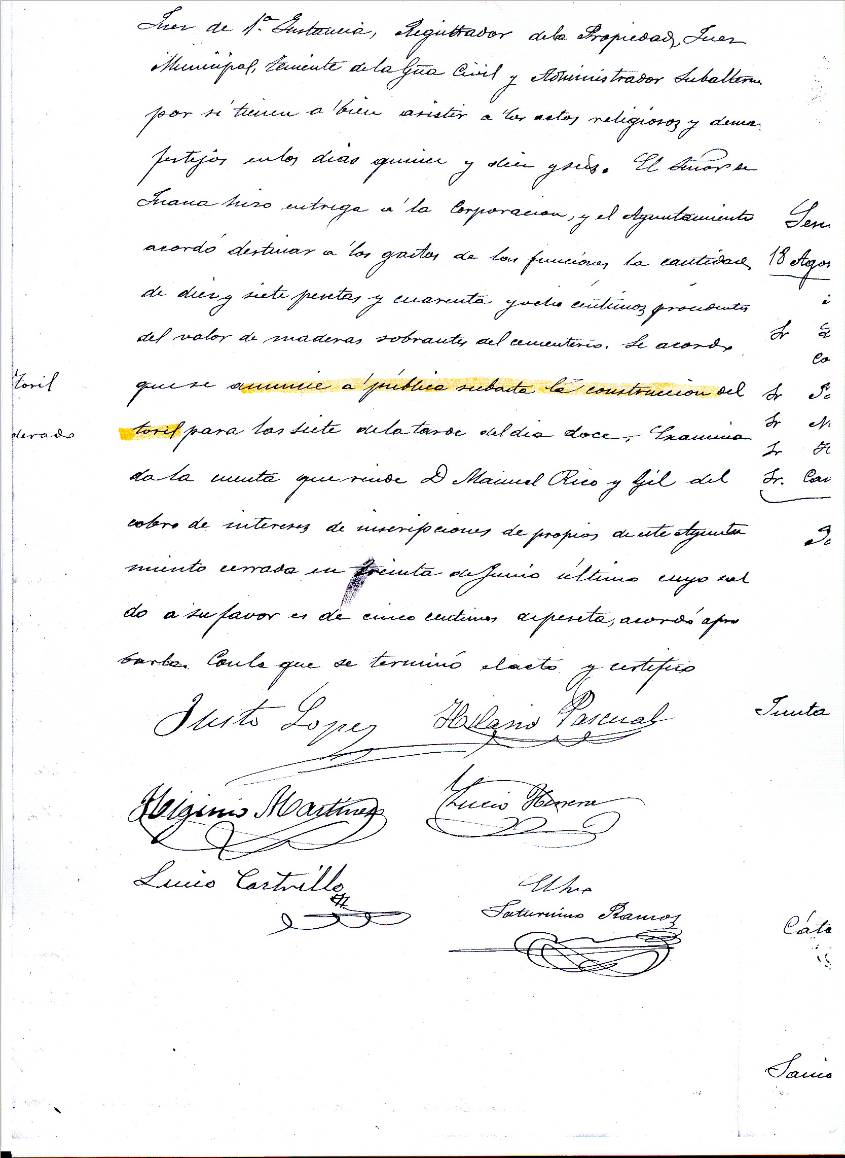 Juez de 1ª Instancia, Registrador de la Propiedad, Juez
Municipal, Teniente de la Gûa Civil y Administrador Subalterno
por si tienen a bien asistir a los actos religiosos y demas
festejos en los dias quince y diez y seis. El Señor
hizo entrega a la Corporacion, y el Ayuntamiento
acordó destinar a los gastos de las funciones la cantidad
de diez y siete pesetas y cuarenta y ocho centimos procedentes
del valor de maderas sobrantes del cementerio. Se acordo
que se anuncie a pública subasta la construccion del
toril para las siete de la tarde del dia doce. Examina
da la cuenta que rinde D Manuel Rico y Gil del
cobro de intereses de inscripciones de propios de este Ayunta
miento cerrada en treinta de Junio último cuyo sal
do a su favor es de cinco centimos de peseta, acordó apro
barla. Con lo que se terminó el acto y certifico
Justo Lopez Hilario Pascual
Higinio Martinez Lucio Herrera
Lucio Castrillo
Saturnino Ramos
Toril
18 Agos
Sr
Sr
Sr
Sr
Sr.
Junta